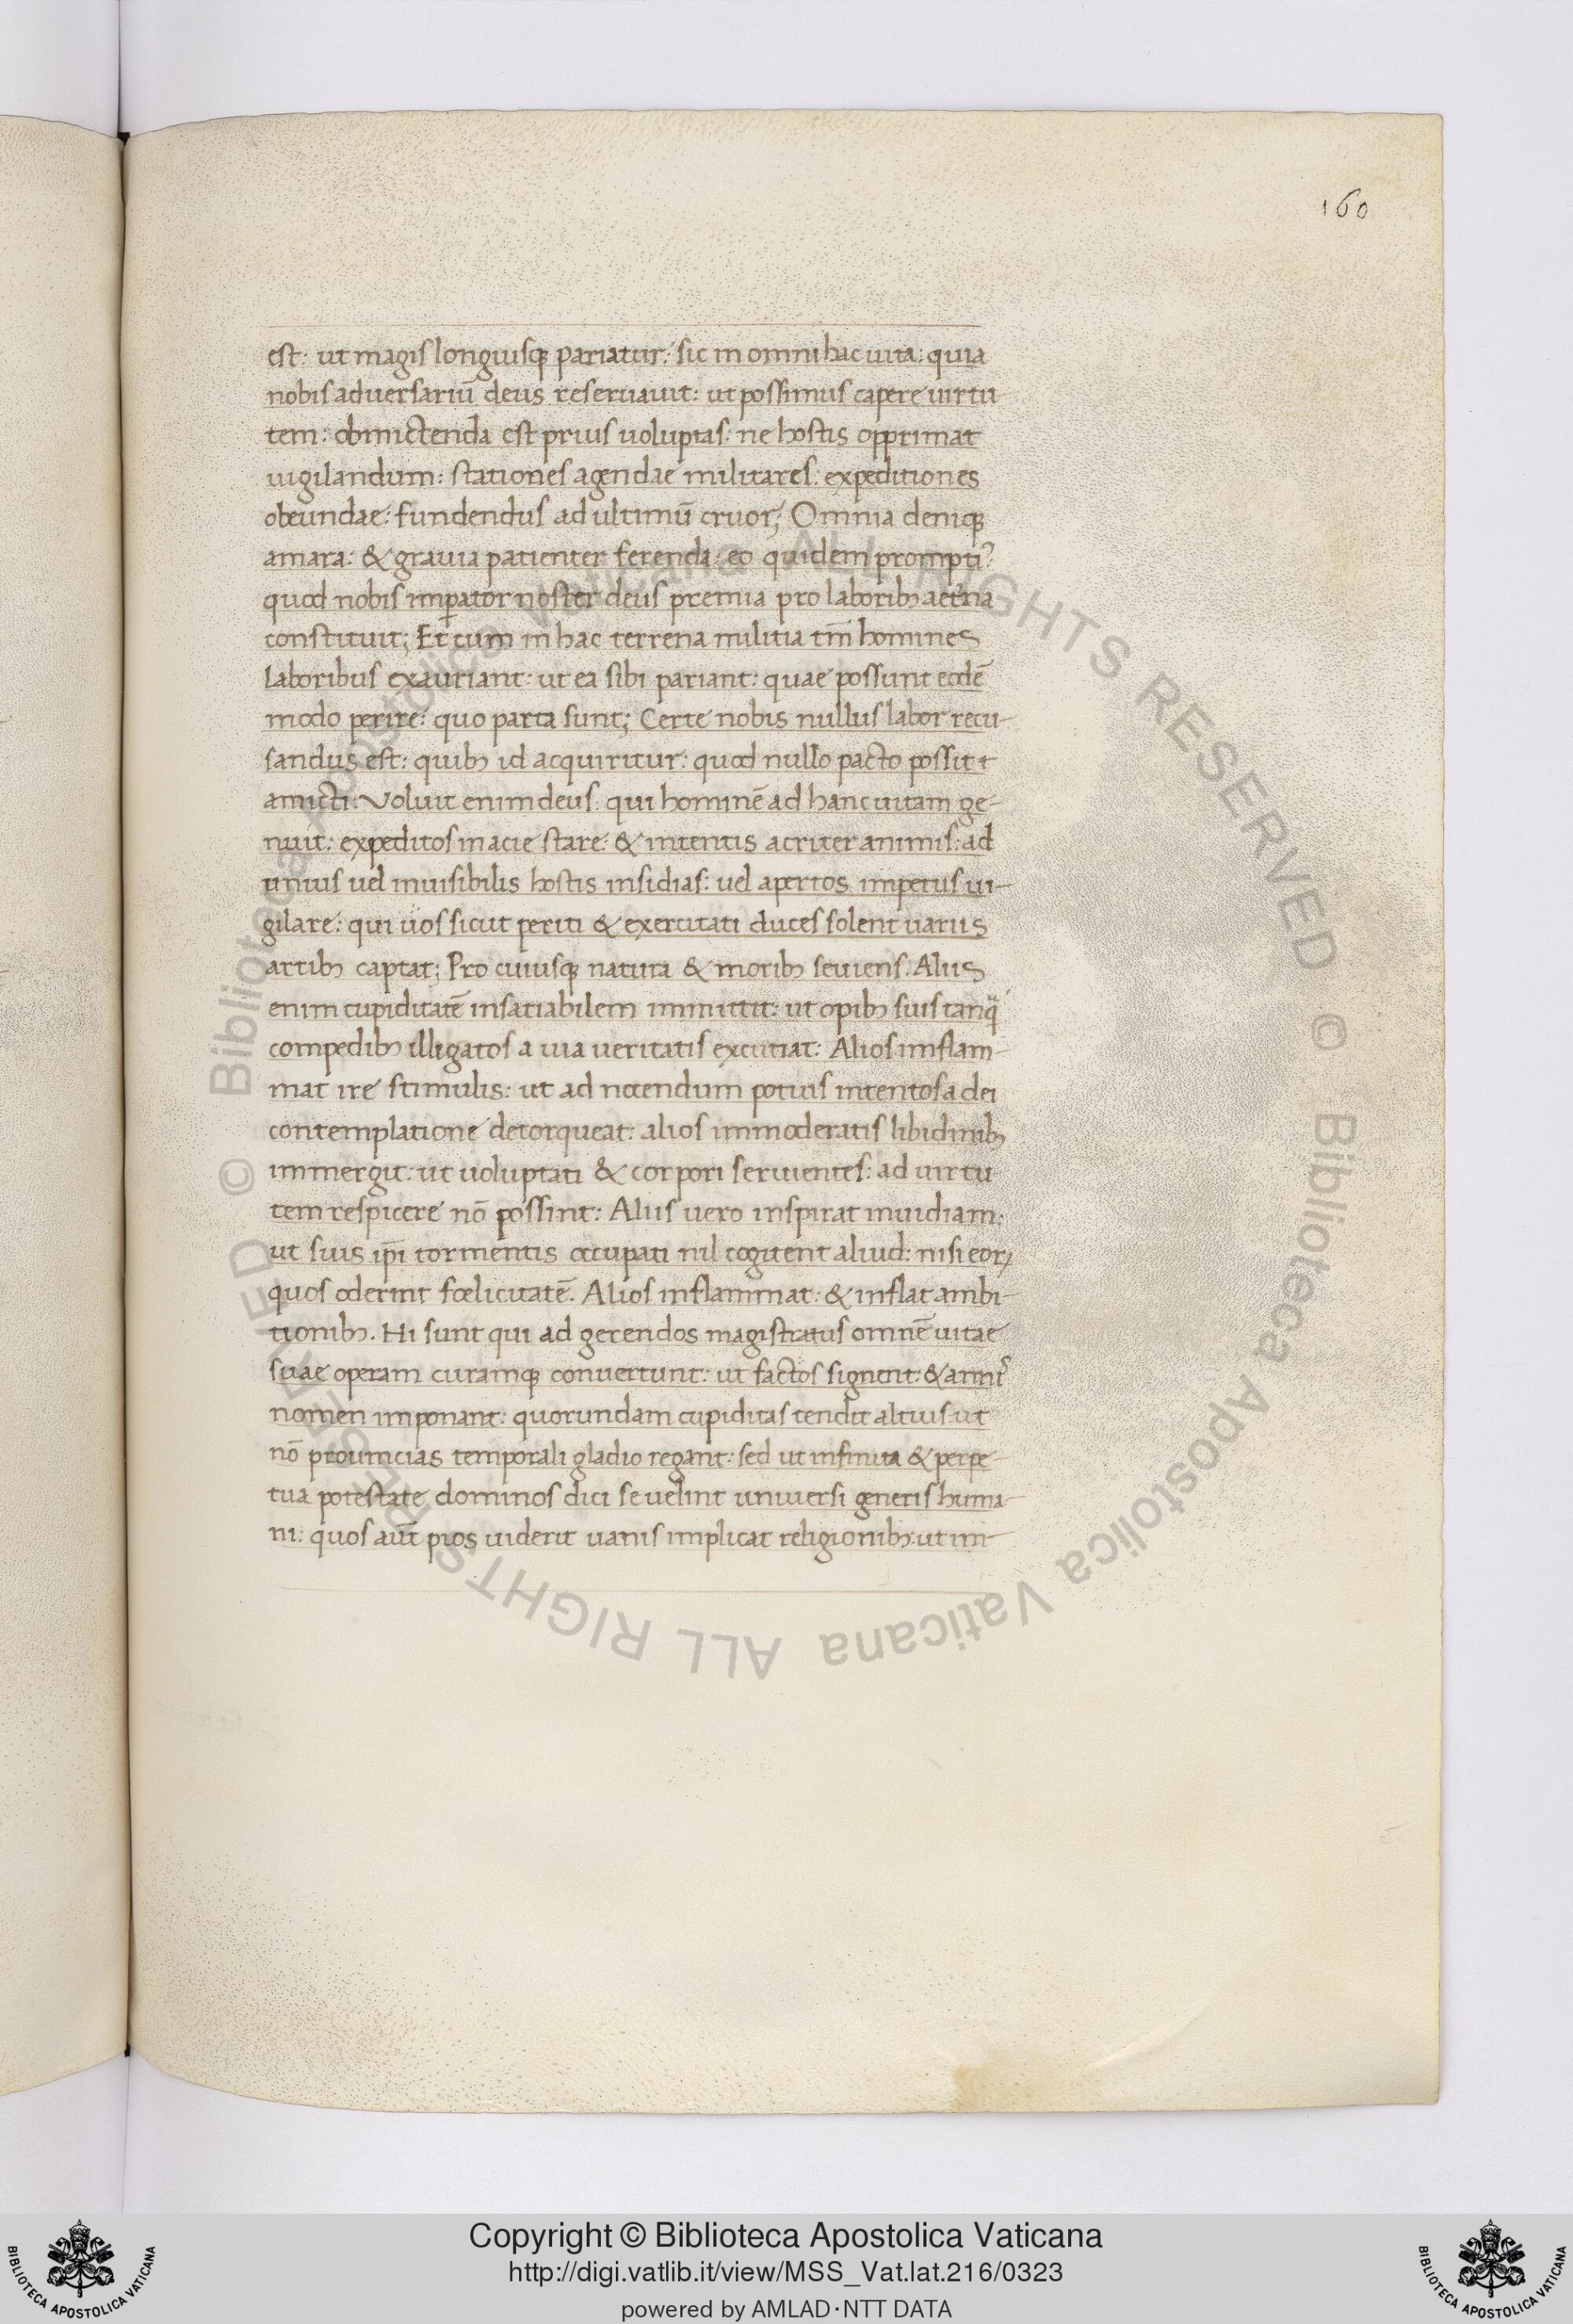 160
est: ut magis longiusq; pariatur: sic in omni hac uita: quia
nobis aduersariū deus reseruauit: ut possimus capere uirtu
tem: obmictenda est prius uoluptas: ne hostis opprimat
uigilandum: stationes agendae militares: expeditiones
obeundae: fundendus ad ultimū cruor; Omnia deniq;
amara: & grauia patienter ferenda: eo quidem prompti⁹
quod nobis imꝑator noster deus premia pro laborib; aet̄na
constituit; Et cum in hac terrena militia tm̄ homines
laboribus exauriant: ut ea sibi pariant: quae possunt eodē
modo perire: quo parta sunt; Certe nobis nullus labor recu-
sandus est: quib; id acquiritur: quod nullo pacto possit
amicti: Voluit enim deus: qui hominē ad hanc uitam ge-
nuit: expeditos in acie stare: & intentis acriter animis: ad
unius uel inuisibilis hostis insidias: uel apertos impetus ui-
gilare: qui uos sicut periti & exercitati duces solent uariis
artib; captat; Pro cuiusq; natura & morib; seuiens. Aliis
enim cupiditatē insatiabilem immittit: ut opib; suis tanq̃
compedib; illigatos a uia ueritatis excutiat: Alios inflam-
mat ire stimulis: ut ad nocendum potius intentos a dei
contemplatione detorqueat: alios immoderatis libidinib;
immergit: ut uoluptati & corpori seruientes: ad uirtu
tem respicere nō possint: Aliis uero inspirat inuidiam:
ut suis ip̄i tormentis occupati nil cogitent aliud: nisi eoꝝ
quos oderint foelicitatē. Alios inflammat: & inflat ambi-
tionib;. Hi sunt qui ad gerendos magistratus omnē uitae
suae operam curamq; conuertunt: ut factos signent: & annis
nomen imponant: quorundam cupiditas tendit altius: ut
nō prouincias temporali gladio regant: sed ut infinita & perpe-
tua potestate dominos dici se uelint uniuersi generis huma-
ni: quos aūt pios uiderit uanis implicat religionib;: ut im-
© Biblioteca Apostolica Vaticana ALL RIGHTS RESERVED © Biblioteca Apostolica Vaticana ALL RIGHTS RESERVED
BIBLIOTECA APOSTOLICA VATICANA
Copyright © Biblioteca Apostolica Vaticana
http://digi.vatlib.it/view/MSS_Vat.lat.216/0323
powered by AMLAD·NTT DATA
BIBLIOTECA APOSTOLICA VATICANA